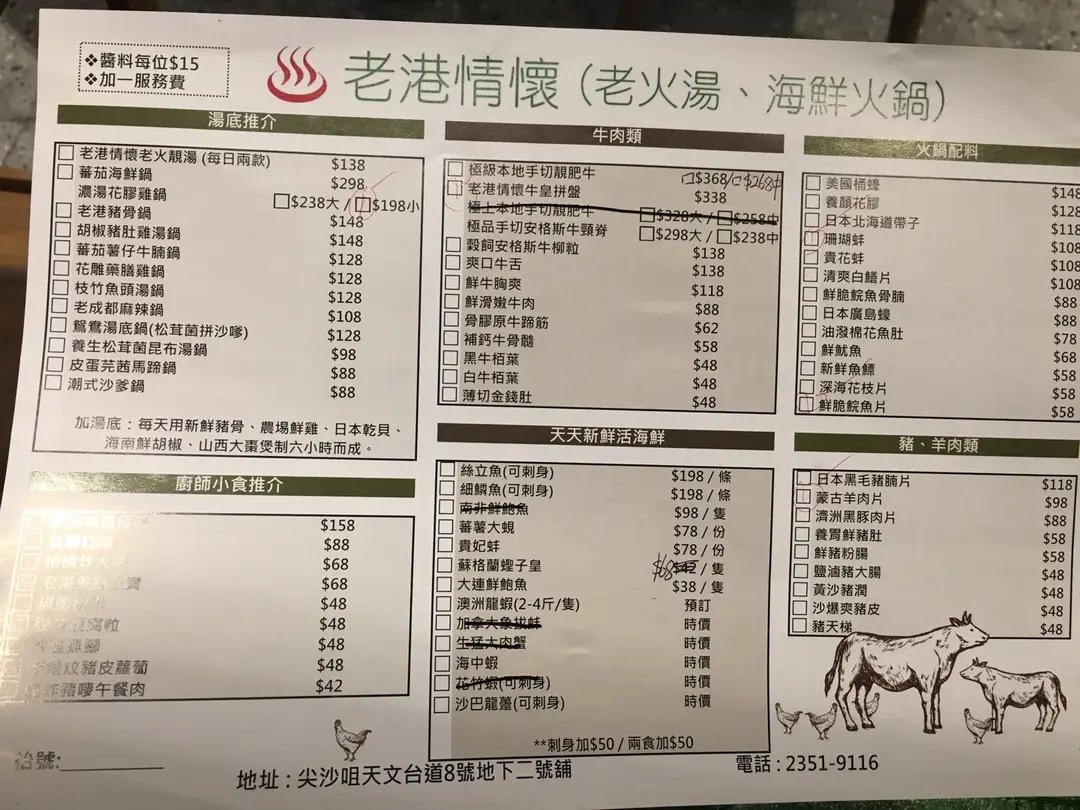 ❖醬料每位$15
❖加一服務費
老港情懷 (老火湯、海鮮火鍋)
湯底推介
老港情懷老火靚湯 (每日兩款) $138
蕃茄海鮮鍋 $298
濃湯花膠雞鍋 $238大 / $198小
老港豬骨鍋 $148
胡椒豬肚雞湯鍋 $148
蕃茄薯仔牛腩鍋 $128
花雕藥膳雞鍋 $128
枝竹魚頭湯鍋 $128
老成都麻辣鍋 $108
鴛鴦湯底鍋(松茸菌拼沙嗲) $128
養生松茸菌昆布湯鍋 $98
皮蛋芫茜馬蹄鍋 $88
潮式沙爹鍋 $88
加湯底：每天用新鮮豬骨、農場鮮雞、日本乾貝、
海南鮮胡椒、山西大棗煲制六小時而成。
廚師小食推介
$158
$88
$68
$68
$48
$48
$48
豬皮蘿蔔 $48
午餐肉 $42
牛肉類
極級本地手切靚肥牛 $368/$268中
老港情懷牛皇拼盤 $338
極上本地手切靚肥牛 $328大 / $258中
極品手切安格斯牛頸脊 $298大 / $238中
穀飼安格斯牛柳粒 $138
爽口牛舌 $138
鮮牛胸爽 $118
鮮滑嫩牛肉 $88
骨膠原牛蹄筋 $62
補鈣牛骨髓 $58
黑牛栢葉 $48
白牛栢葉 $48
薄切金錢肚 $48
天天新鮮活海鮮
絲立魚(可刺身) $198 / 條
細鱗魚(可刺身) $198 / 條
南非鮮鮑魚 $98 / 隻
蕃薯大蜆 $78 / 份
貴妃蚌 $78 / 份
蘇格蘭蟶子皇 $68 $42 / 隻
大連鮮鮑魚 $38 / 隻
澳洲龍蝦(2-4斤/隻) 預訂
加拿大象拔蚌 時價
生猛大肉蟹 時價
海中蝦 時價
花竹蝦(可刺身) 時價
沙巴龍躉(可刺身) 時價
**刺身加$50 / 兩食加$50
火鍋配料
美國桶蠔 $148
養顏花膠 $128
日本北海道帶子 $118
珊瑚蚌 $108
貴花蚌 $108
清爽白鱔片 $108
鮮脆鯇魚骨腩 $88
日本廣島蠔 $88
油潑棉花魚肚 $78
鮮魷魚 $68
新鮮魚鰾 $58
深海花枝片 $58
鮮脆鯇魚片 $58
豬、羊肉類
日本黑毛豬腩片 $118
蒙古羊肉片 $98
濟洲黑豚肉片 $88
養胃鮮豬肚 $58
鮮豬粉腸 $58
鹽滷豬大腸 $48
黃沙豬潤 $48
沙爆爽豬皮 $48
豬天梯 $48
號:
地址 : 尖沙咀天文台道8號地下二號舖
電話 : 2351-9116